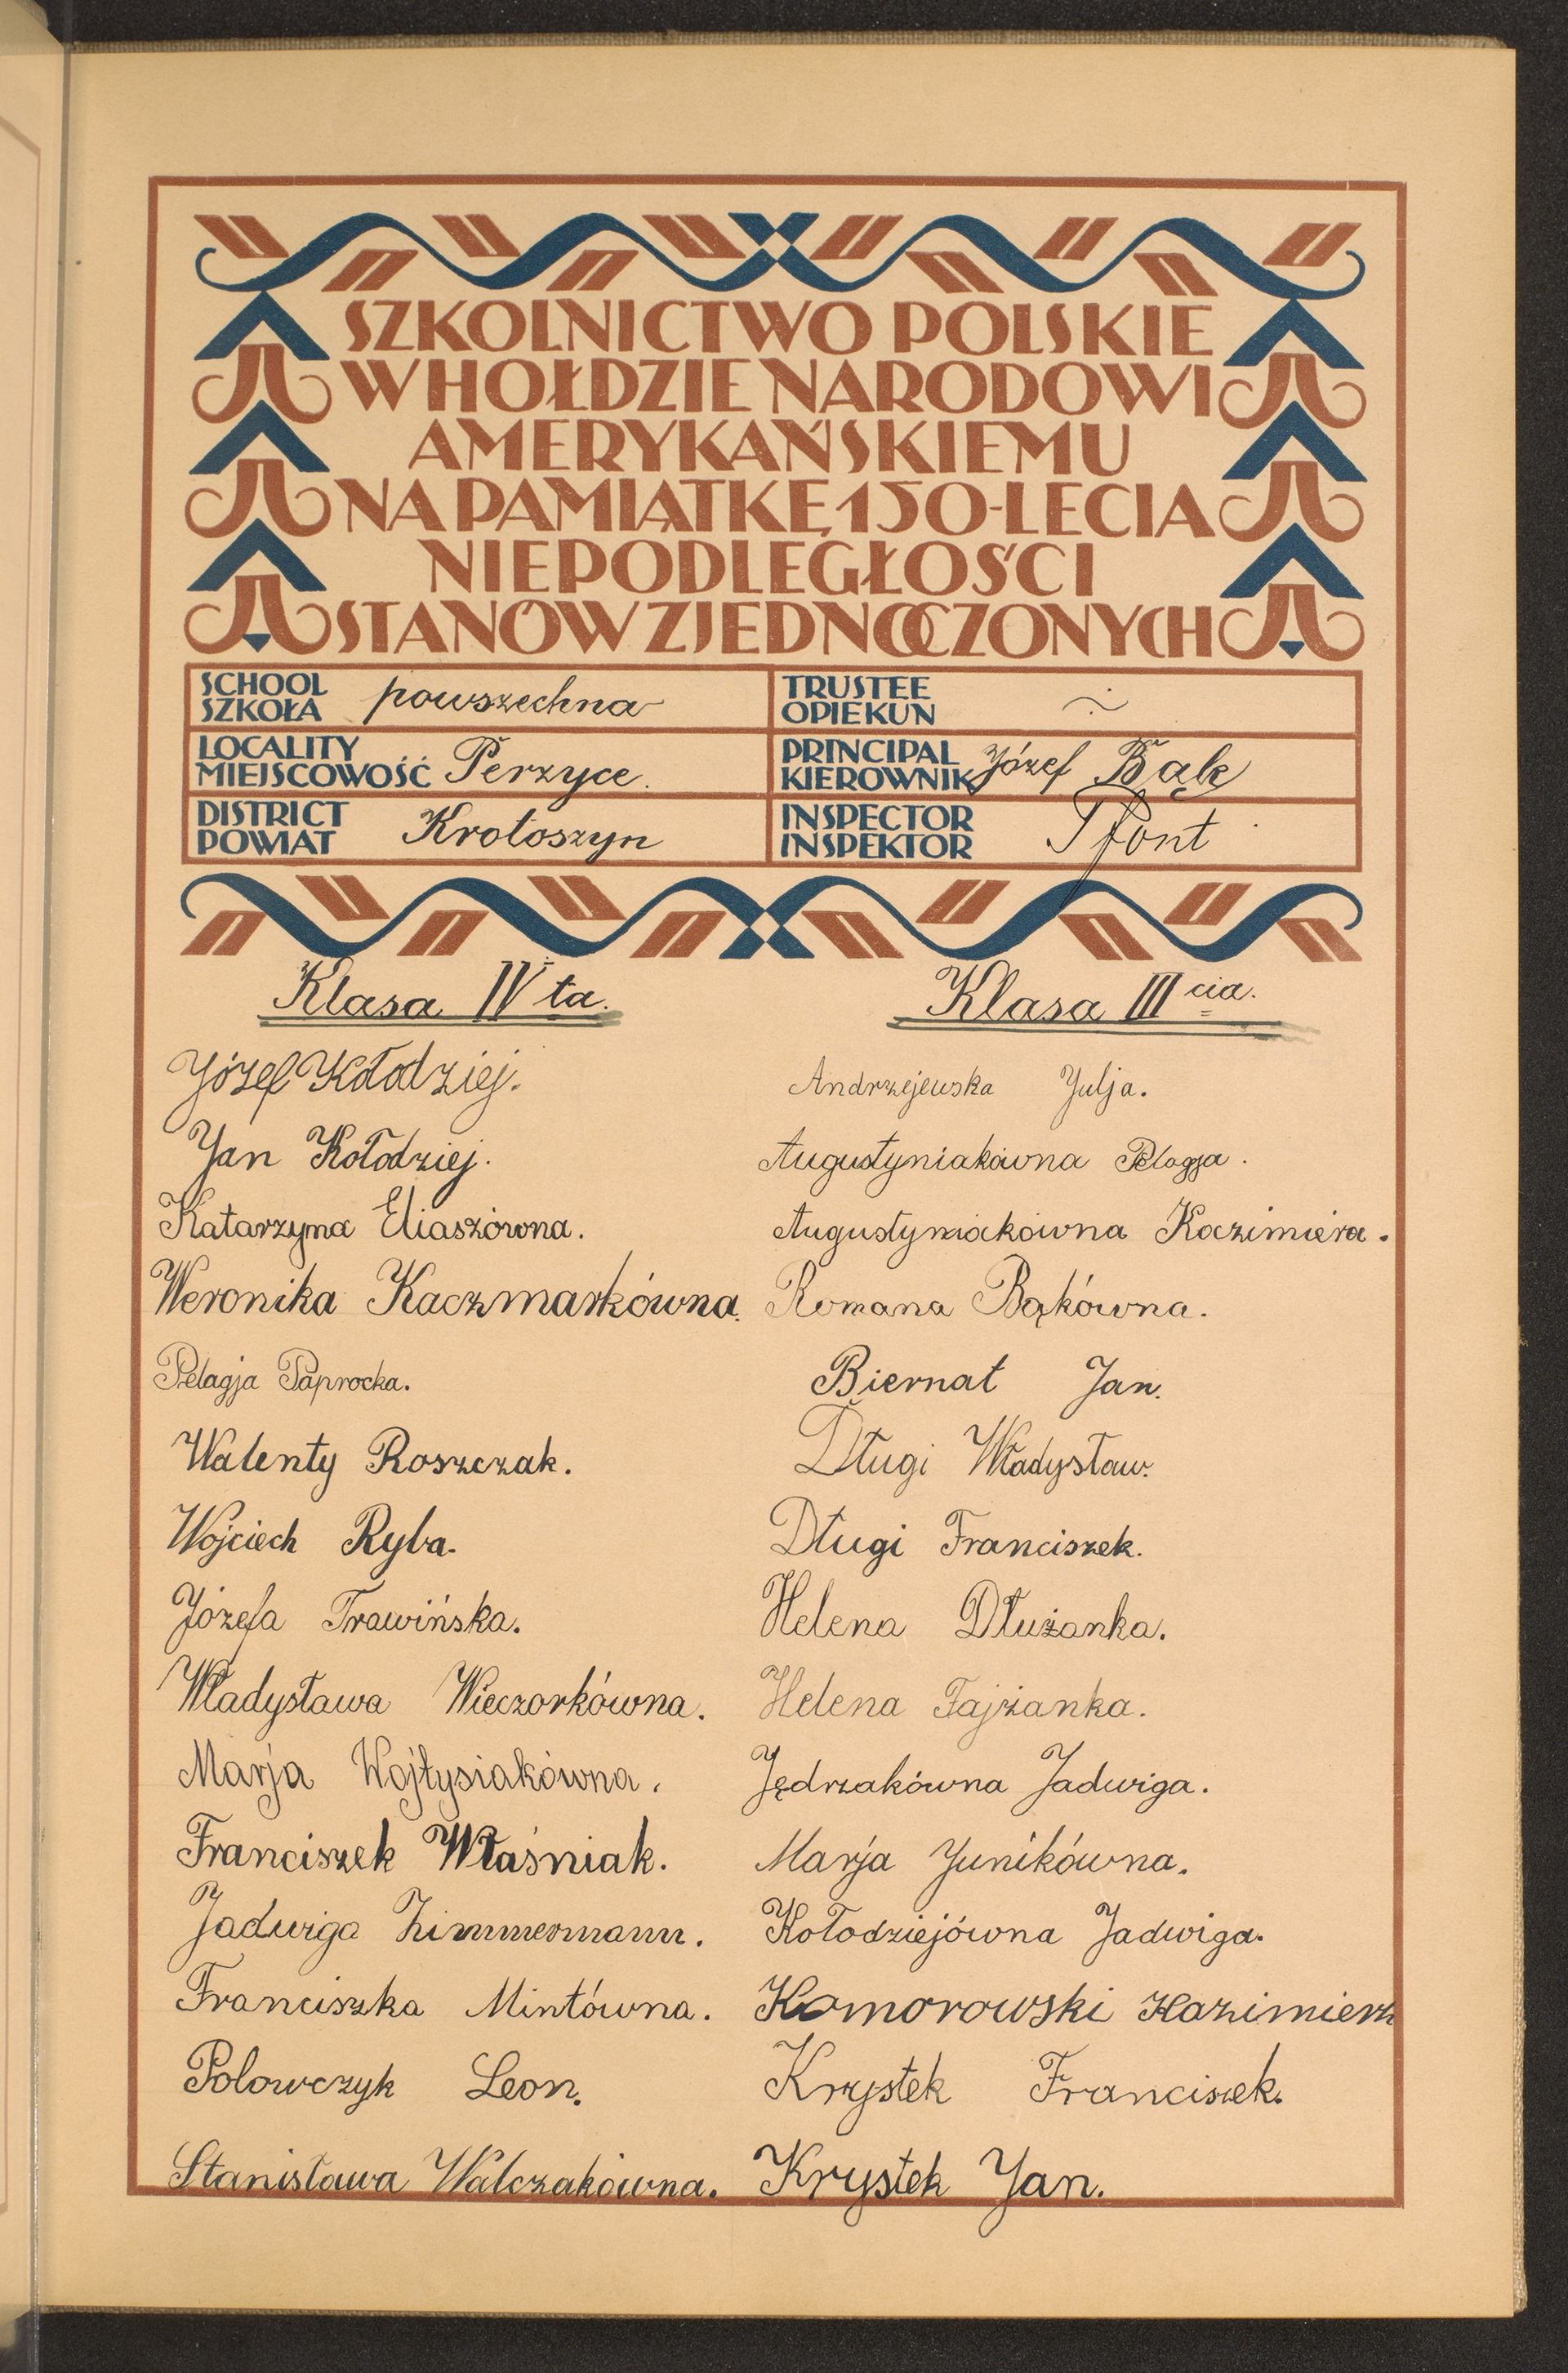 SZKOLNICTWO POLSKIE
W HOŁDZIE NARODOWI
AMERYKAŃSKIEMU
NA PAMIĄTKĘ 150-LECIA
NIEPODLEGŁOŚCI
STANÓW ZJEDNOCZONYCH
SCHOOL
SZKOŁA powszechna
TRUSTEE
OPIEKUN
LOCALITY
MIEJSCOWOŚĆ Perzyce.
PRINCIPAL
KIEROWNIK Józef Bąk
DISTRICT
POWIAT Krotoszyn
INSPECTOR
INSPEKTOR
Klasa IV ta.
Józef Kołodziej.
Jan Kołodziej.
Katarzyna Eliaszówna.
Weronika Kaczmarkówna.
Pelagja Paprocka.
Walenty Roszczak.
Wojciech Ryba.
Józefa Trawińska.
Władysława Wieczorkówna.
Marja Wojtysiakówna.
Franciszek Właśniak.
Jadwiga Zimmermann.
Franciszka Mintówna.
Polowczyk Leon.
Stanisława Walczakówna.
Klasa III cia.
Andrzejewska Julja.
Augustyniakówna Pelagja.
Augustyniakówna Kazimiera.
Romana Bąkówna.
Biernat Jan.
Długi Władysław.
Długi Franciszek.
Helena Dłużanka.
Helena Fajżanka.
Jędrzakówna Jadwiga.
Marja Junikówna.
Kołodziejówna Jadwiga.
Komorowski Kazimierz
Krzystek Franciszek.
Krystek Jan.